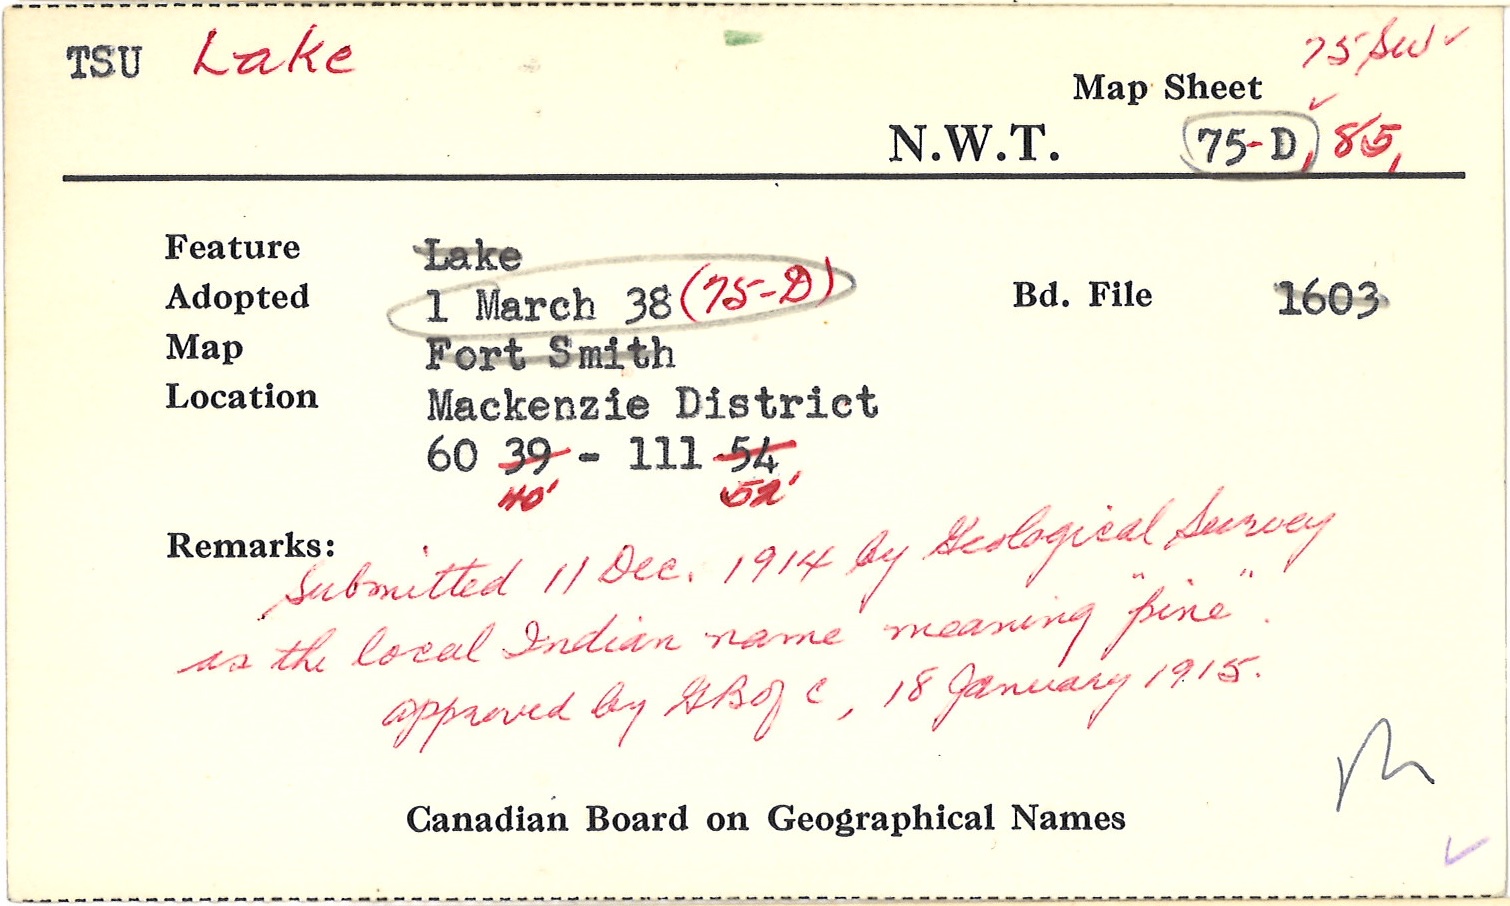 TSU Lake
75 SW ✓
Map Sheet
N.W.T. 75-D, 85,
Feature Lake
Adopted 1 March 38 (75-D) Bd. File 1603
Map Fort Smith
Location Mackenzie District
60 39 - 111 54
40' 52'
Remarks:
Submitted 11 Dec. 1914 by Geological Survey
as the local Indian name meaning "pine".
approved by GBofC, 18 January 1915.
Canadian Board on Geographical Names